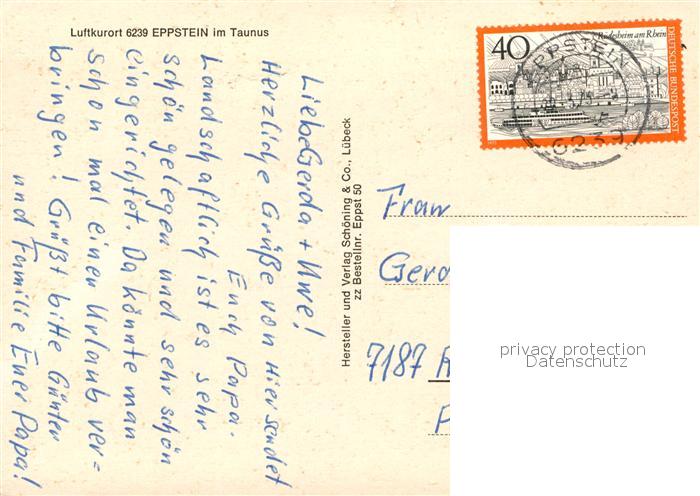 Luftkurort 6239 EPPSTEIN im Taunus
Liebe Gerda + Uwe!
Herzliche Grüße von hier sendet
Euch Papa.
Landschaftlich ist es sehr
schön gelegen und sehr schön
eingerichtet. Da könnte man
schon mal einen Urlaub ver=
bringen! Grüßt bitte Günter
und Familie Euer Papa!
Hersteller und Verlag Schöning & Co., Lübeck
zz Bestellnr. Eppst 50
40
Rüdesheim am Rhein
DEUTSCHE BUNDESPOST
EPPSTEIN
6239
Frau
Gerd
7187
privacy protection
Datenschutz